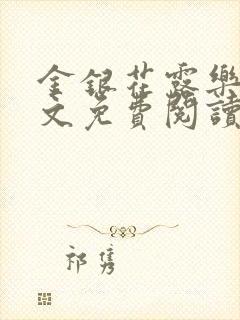 金銀花露樂
文免費閱讀
祁雋